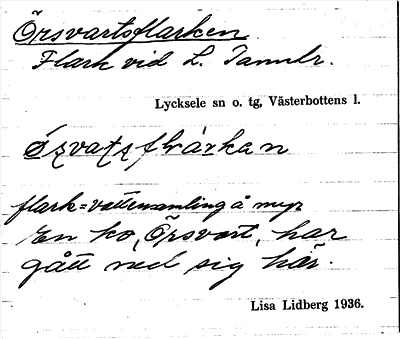 Örsvartsflarken
Flark vid L. Tannbr.
Lycksele sn o. tg, Västerbottens l.
flark = vattensamling å myr
En ko, Örsvart, har
gått ned sig här.
Lisa Lidberg 1936.